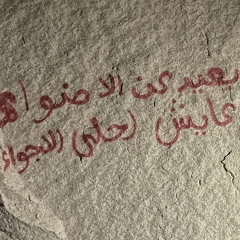 بعيد عن الاضواء
عايش احلى الاجواء